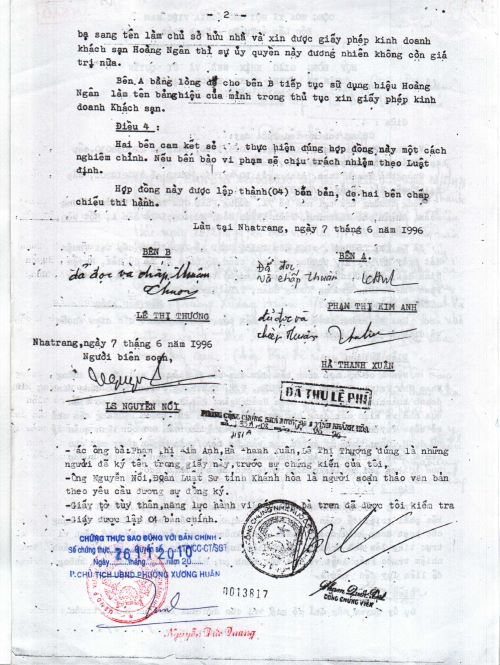 - 2 -
bạ sang tên làm chủ sở hữu nhà và xin được giấy phép kinh doanh
khách sạn Hoàng Ngân thì sự ủy quyền này đương nhiên không còn giá
trị nữa.
Bên A bằng lòng để cho bên B tiếp tục sử dụng hiệu Hoàng
Ngân làm tên bảng hiệu của mình trong thủ tục xin giấy phép kinh
doanh Khách sạn.
Điều 4 :
Hai bên cam kết sẽ thực hiện đúng hợp đồng này một cách
nghiêm chỉnh. Nếu bên bào vi phạm sẽ chịu trách nhiệm theo Luật
định.
Hợp đồng này được lập thành(04) bốn bản, để hai bên chấp
chiếu thi hành.
Làm tại Nhatrang, ngày 7 tháng 6 năm 1996
BÊN B
BÊN A.
đã đọc và chấp thuận
Đã đọc
và chấp thuận
LÊ THỊ THƯƠNG
PHẠM THỊ KIM ANH
đã đọc và
chấp thuận
Nhatrang, ngày 7 tháng 6 năm 1996
Người biên soạn,
HÀ THANH XUÂN
ĐÃ THU LỆ PHÍ
LS NGUYỄN NỔI
PHÒNG CÔNG CHỨNG TỈNH KHÁNH HÒA
- ác ông bà: Phạm hị Kim Anh, Hà Thanh Xuân, Lê Thị Thương đúng là những
người đã ký tên trong giấy này, trước sự chứng kiến của tôi,
-Ông Nguyễn Nổi, Đoàn Luật Sư tỉnh Khánh hòa là người soạn thảo văn bản
theo yêu cầu đương sự đồng ký.
-Giấy tờ tùy thân, năng lực hành vi bà trên đã được tôi kiểm tra
-Giấy được lập 04 bản chính.
CHỨNG THỰC SAO ĐÚNG VỚI BẢN CHÍNH
Số chứng thực Quyển số TP/CC-CT/SGT
Ngày tháng năm 20
26 11 2010
P.CHỦ TỊCH UBND PHƯỜNG XƯƠNG HUÂN
0013817
CÔNG CHỨNG VIÊN
Nguyễn Đức Quang